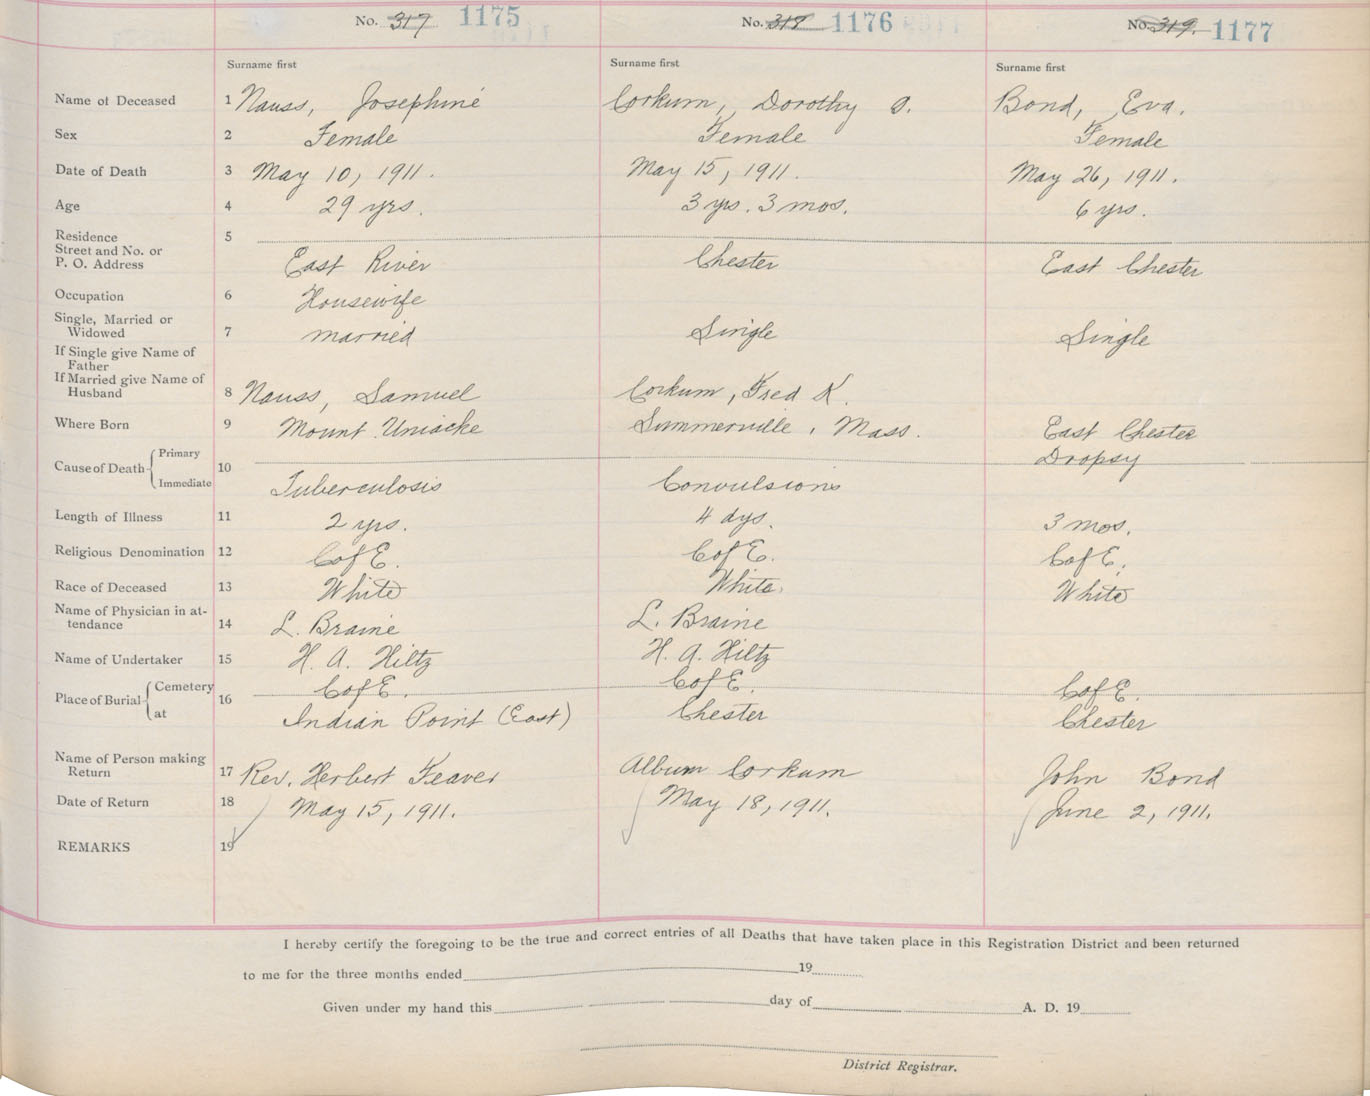 No. 317 1175 No. 318 1176 No. 319. 1177
Surname first Surname first Surname first
Name of Deceased 1 Nauss, Josephine Corkum, Dorothy O. Bond, Eva.
Sex 2 Female Female Female
Date of Death 3 May 10, 1911. May 15, 1911. May 26, 1911.
Age 4 29 yrs. 3 yrs. 3 mos. 6 yrs.
Residence 5
Street and No. or
P. O. Address East River Chester East Chester
Occupation 6 Housewife
Single, Married or
Widowed 7 married Single Single
If Single give Name of
Father
If Married give Name of
Husband 8 Nauss, Samuel Corkum, Fred K.
Where Born 9 Mount Uniacke Summerville, Mass. East Chester
Primary Dropsy
Cause of Death 10
Immediate Tuberculosis Convulsions
Length of Illness 11 2 yrs. 4 dys. 3 mos.
Religious Denomination 12 C of E. C of E. C of E.
Race of Deceased 13 White White. White
Name of Physician in at-
tendance 14 L. Braine L. Braine
Name of Undertaker 15 H. A. Hiltz H. A. Hiltz
Cemetery C of E. C of E. C of E.
Place of Burial 16
at Indian Point (East) Chester Chester
Name of Person making
Return 17 Rev. Herbert Feaver Album Corkum John Bond
Date of Return 18 May 15, 1911. May 18, 1911. June 2, 1911.
REMARKS 19
I hereby certify the foregoing to be the true and correct entries of all Deaths that have taken place in this Registration District and been returned
to me for the three months ended 19
Given under my hand this day of A. D. 19
District Registrar.